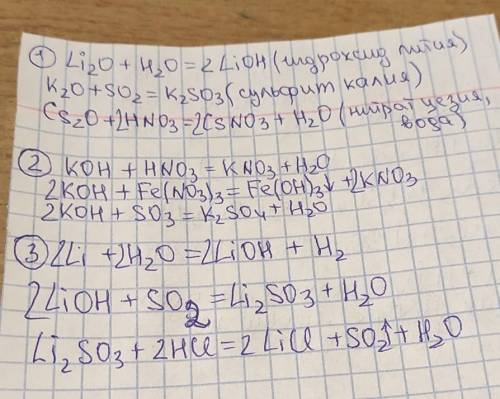 1 Li₂O + H₂O = 2 LiOH (гидроксид лития)
K₂O + SO₂ = K₂SO₃ (сульфит калия)
Cs₂O + 2HNO₃ = 2CsNO₃ + H₂O (нитрат цезия, вода)
2 KOH + HNO₃ = KNO₃ + H₂O
2KOH + Fe(NO₃)₃ = Fe(OH)₃↓ + 2KNO₃
2KOH + SO₃ = K₂SO₄ + H₂O
3 2Li + 2H₂O = 2LiOH + H₂
2LiOH + SO₂ = Li₂SO₃ + H₂O
Li₂SO₃ + 2HCl = 2 LiCl + SO₂↑ + H₂O